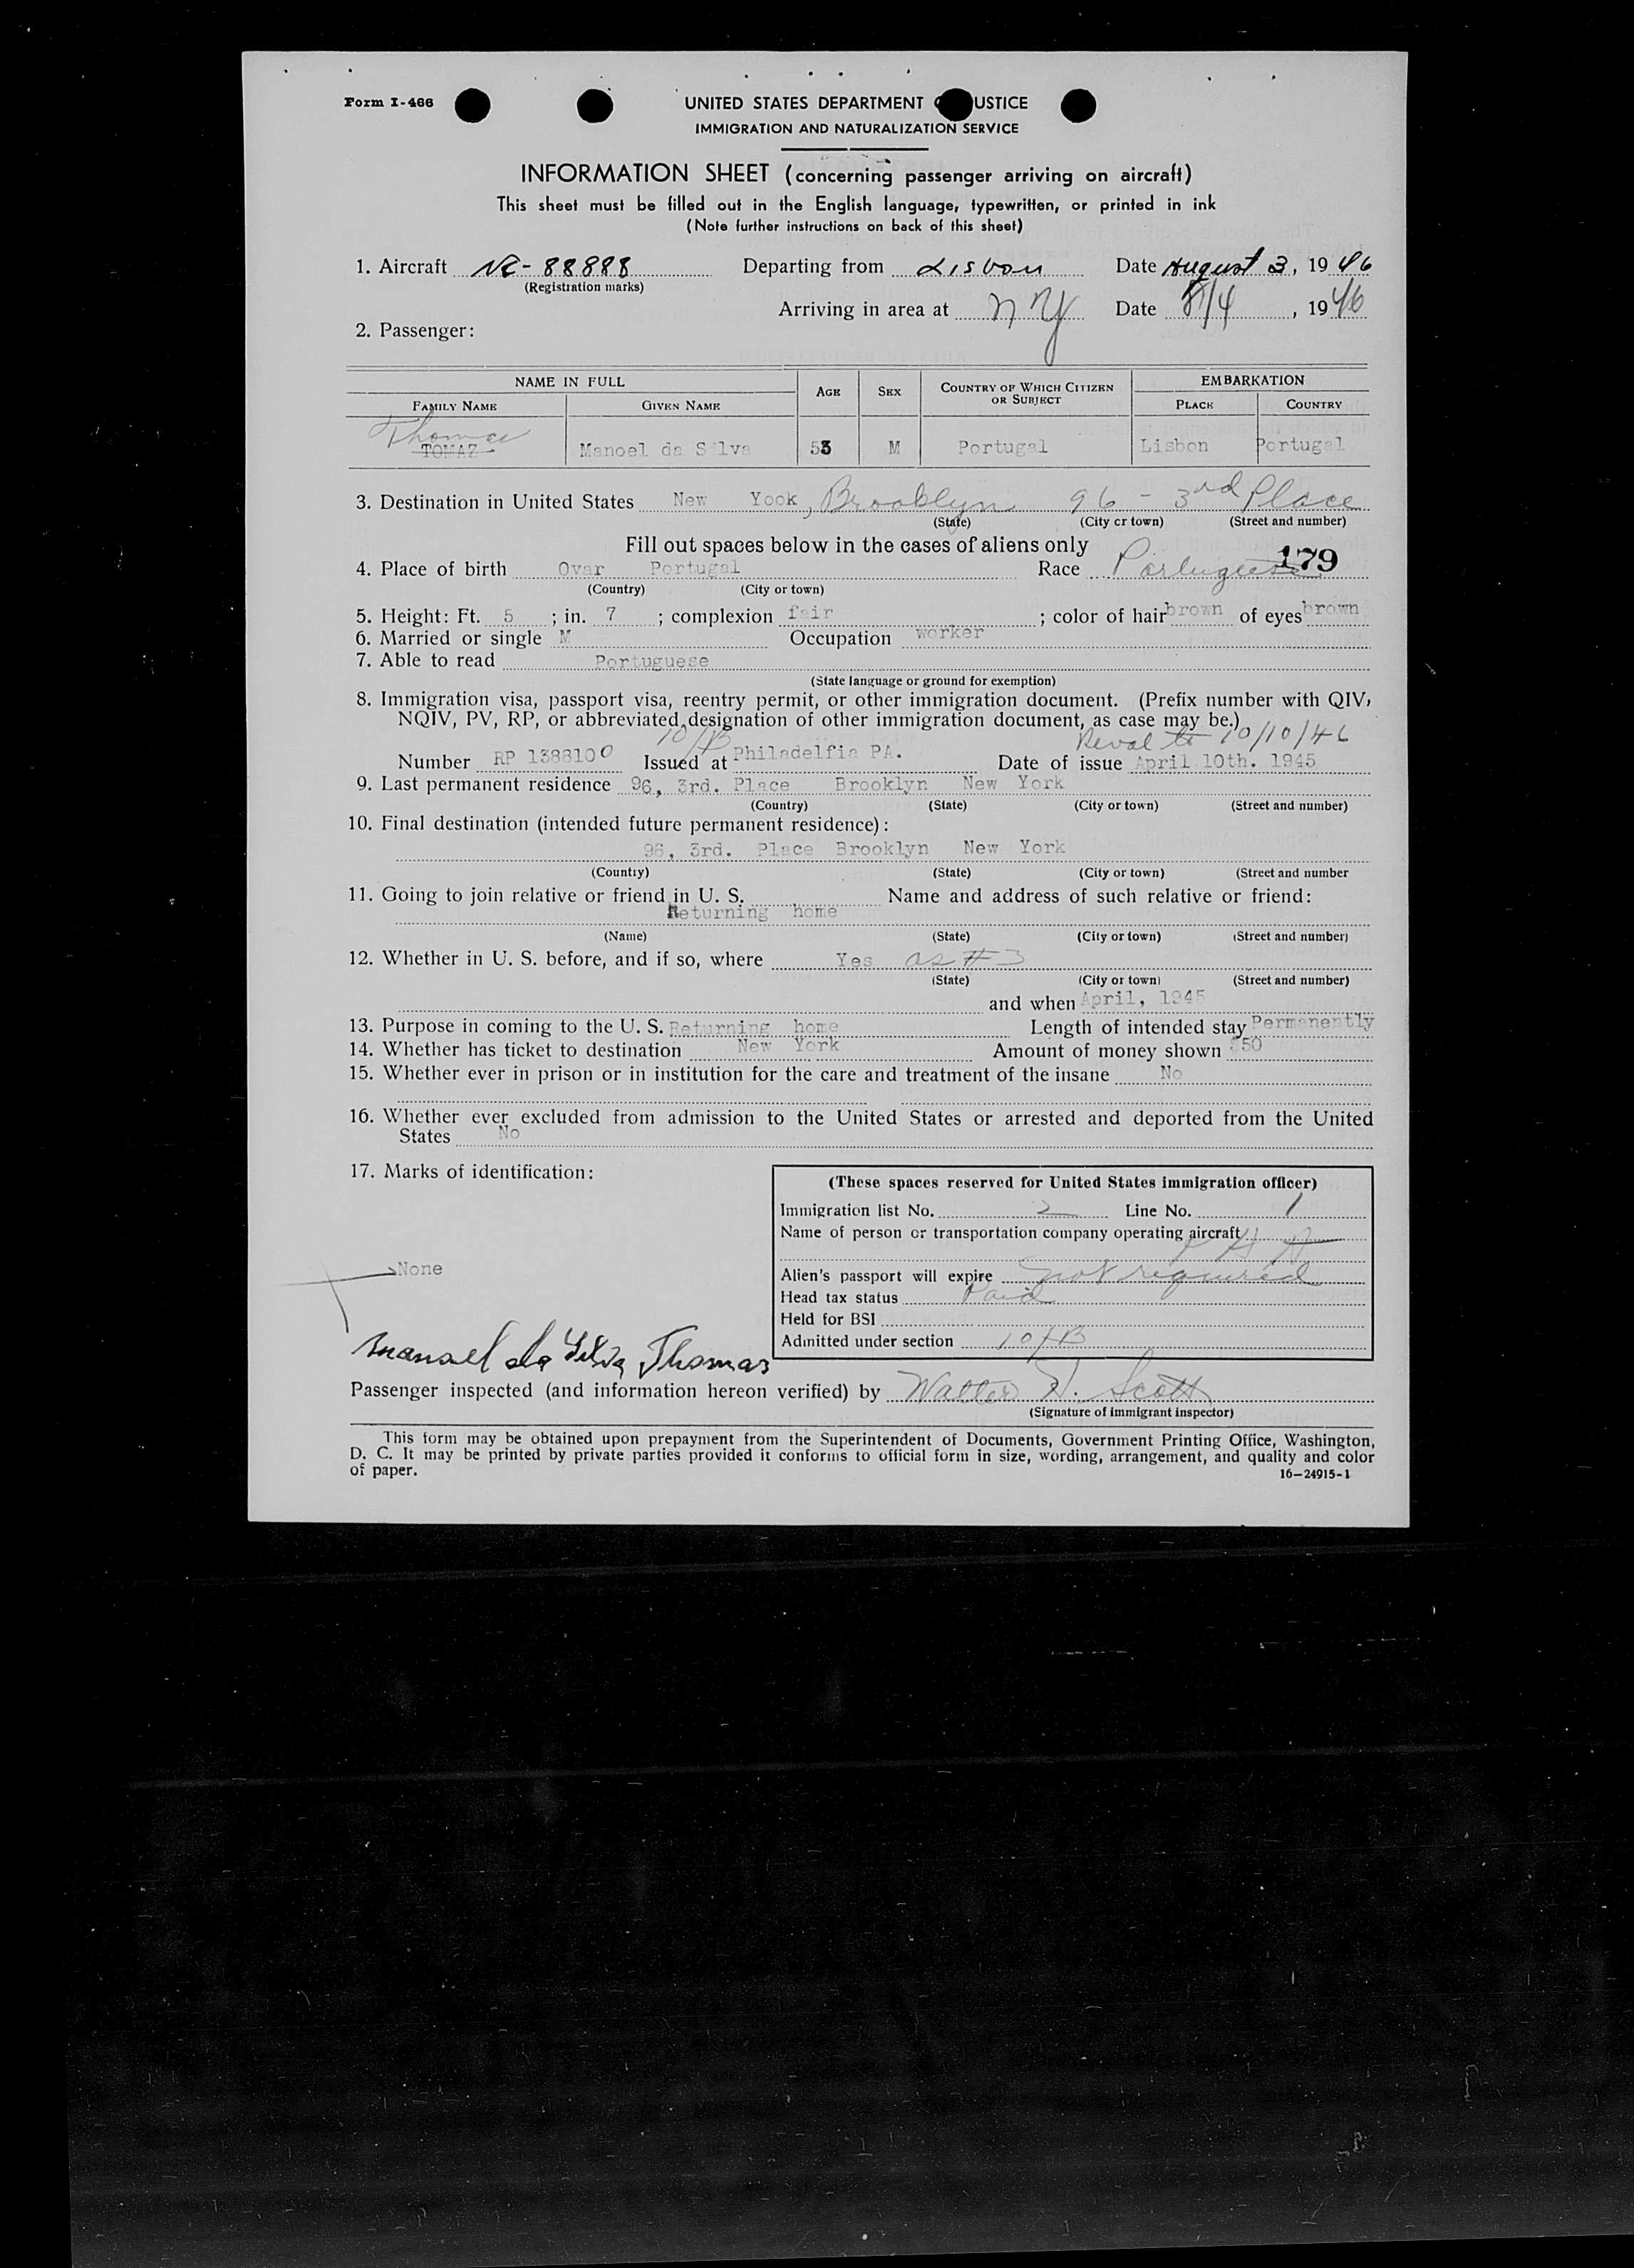 Form I-466
UNITED STATES DEPARTMENT USTICE
IMMIGRATION AND NATURALIZATION SERVICE
INFORMATION SHEET (concerning passenger arriving on aircraft)
This sheet must be filled out in the English language, typewritten, or printed in ink
(Note further instructions on back of this sheet)
1. Aircraft NC-88888 Departing from Lisbon Date August 3, 1946
(Registration marks)
Arriving in area at NY Date 8/4, 1946
2. Passenger:
NAME IN FULL AGE SEX COUNTRY OF WHICH CITIZEN OR SUBJECT EMBARKATION
FAMILY NAME GIVEN NAME PLACE COUNTRY
Thomas
TOMAZ Manoel da Silva 53 M Portugal Lisbon Portugal
3. Destination in United States New Yook, Brooklyn 96 - 3rd Place
(State) (City or town) (Street and number)
Fill out spaces below in the cases of aliens only
179
4. Place of birth Ovar Portugal Race Portuguese
(Country) (City or town)
5. Height: Ft. 5 ; in. 7 ; complexion fair ; color of hair brown of eyes brown
6. Married or single M Occupation worker
7. Able to read Portuguese
(State language or ground for exemption)
8. Immigration visa, passport visa, reentry permit, or other immigration document. (Prefix number with QIV,
NQIV, PV, RP, or abbreviated designation of other immigration document, as case may be.)
10/B Reval to 10/10/46
Number RP 1388100 Issued at Philadelfia PA. Date of issue April 10th. 1945
9. Last permanent residence 96, 3rd. Place Brooklyn New York
(Country) (State) (City or town) (Street and number)
10. Final destination (intended future permanent residence):
96, 3rd. Place Brooklyn New York
(Country) (State) (City or town) (Street and number
11. Going to join relative or friend in U. S. Name and address of such relative or friend:
Returning home
(Name) (State) (City or town) (Street and number)
12. Whether in U. S. before, and if so, where Yes as #3
(State) (City or town) (Street and number)
and when April, 1945
13. Purpose in coming to the U. S. Returning home Length of intended stay Permanently
14. Whether has ticket to destination New York Amount of money shown $50
15. Whether ever in prison or in institution for the care and treatment of the insane No
16. Whether ever excluded from admission to the United States or arrested and deported from the United
States No
17. Marks of identification:
None
(These spaces reserved for United States immigration officer)
Immigration list No. 2 Line No. 1
Name of person or transportation company operating aircraft
Alien's passport will expire not required
Head tax status Paid
Held for BSI
Admitted under section 10/B
Manoel da Silva Thomas
Passenger inspected (and information hereon verified) by Walter Scott
(Signature of immigrant inspector)
This form may be obtained upon prepayment from the Superintendent of Documents, Government Printing Office, Washington,
D. C. It may be printed by private parties provided it conforms to official form in size, wording, arrangement, and quality and color
of paper.
16—24915-1